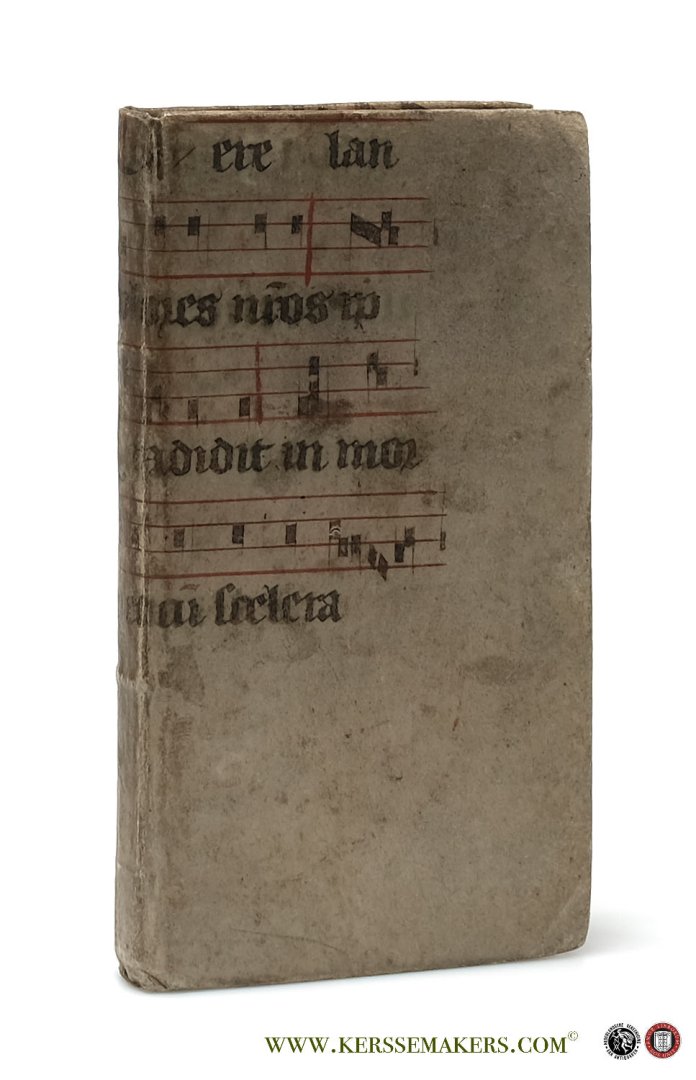 ere lan
nes nr̄os ip
adidit in mor
cū scelera
WWW.KERSSEMAKERS.COM©